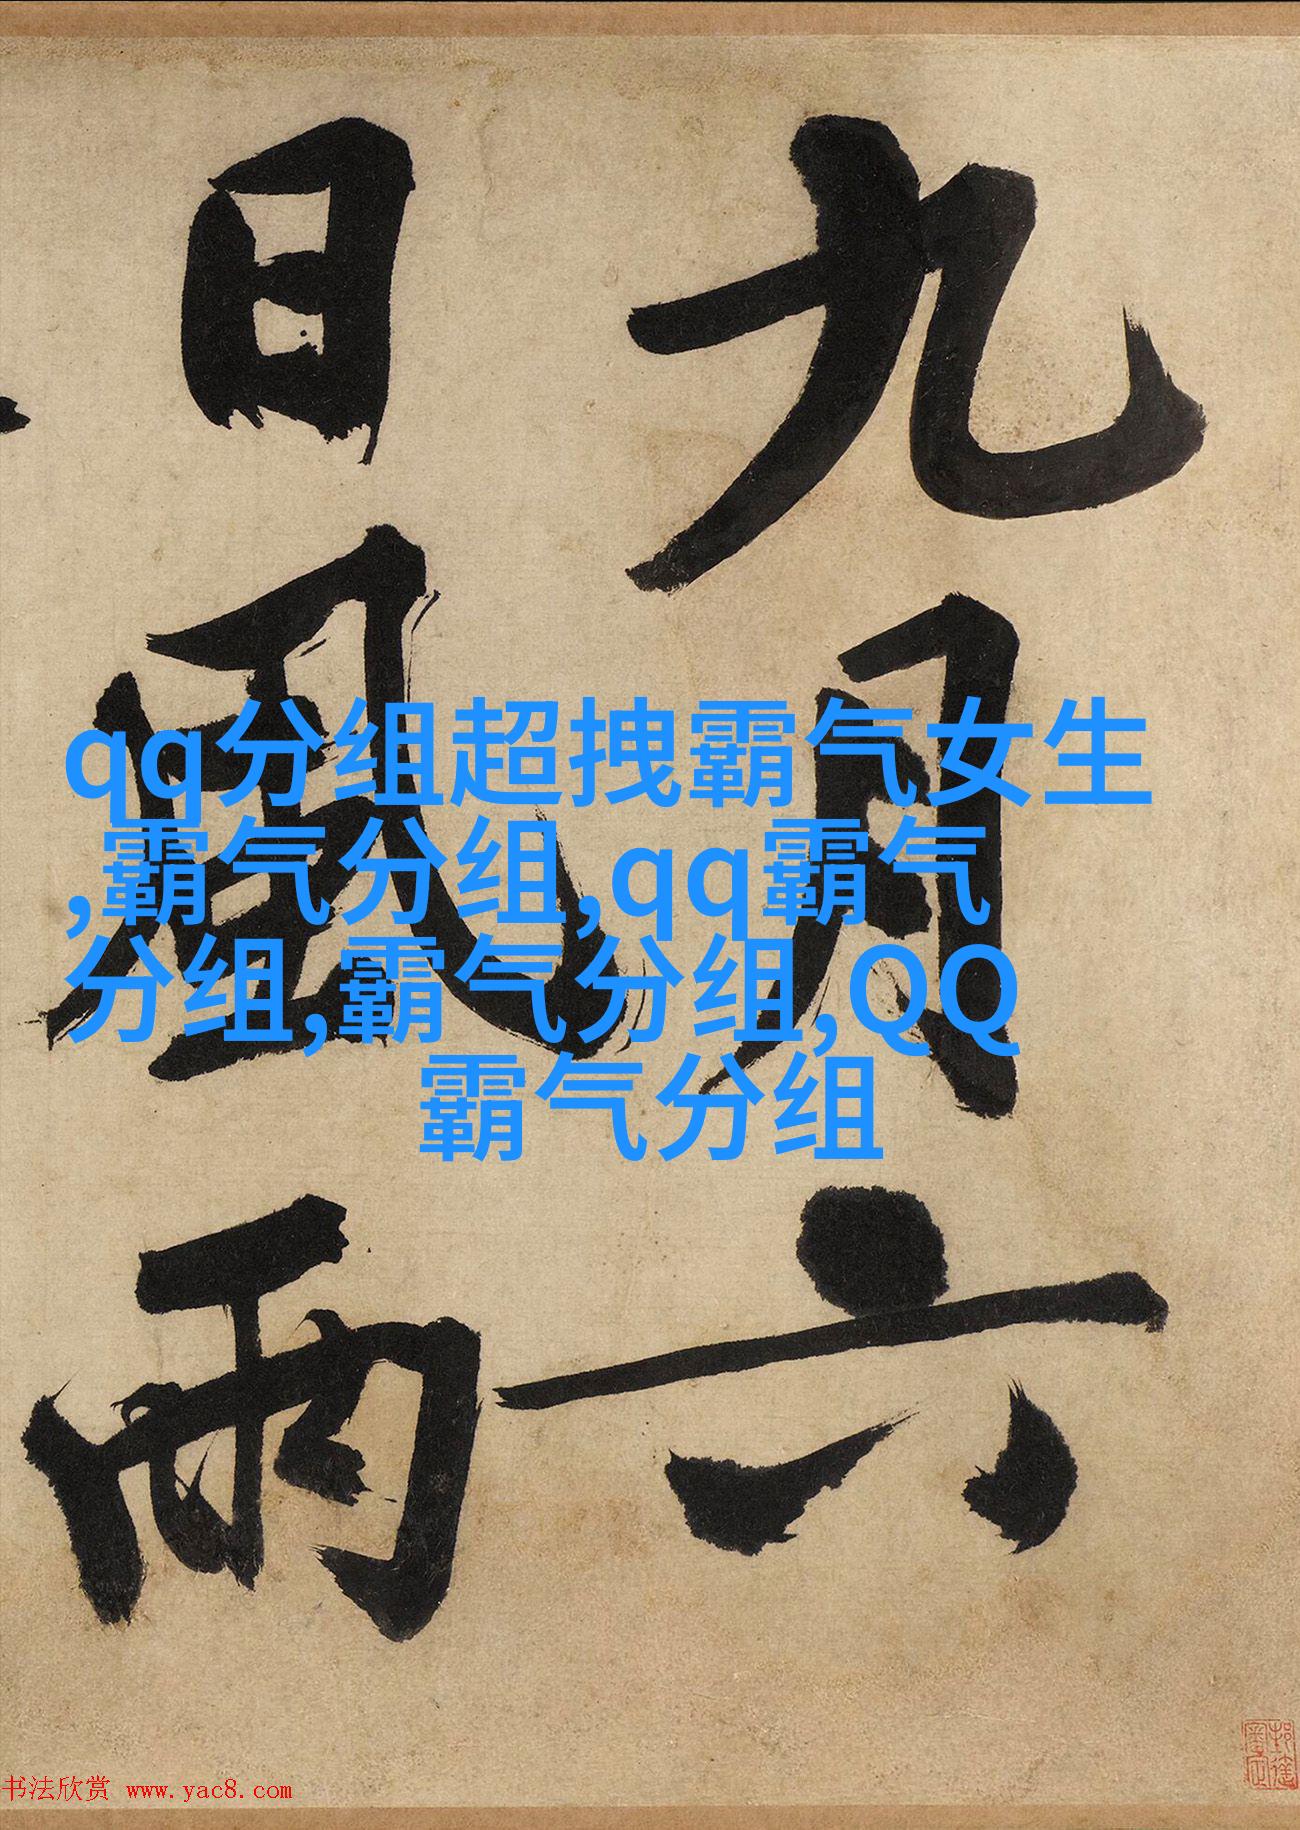 九月六
日風雨
qq分组超拽霸气女生
,霸气分组,qq霸气
分组,霸气分组,QQ
霸气分组
书法欣赏 www.yac8.com